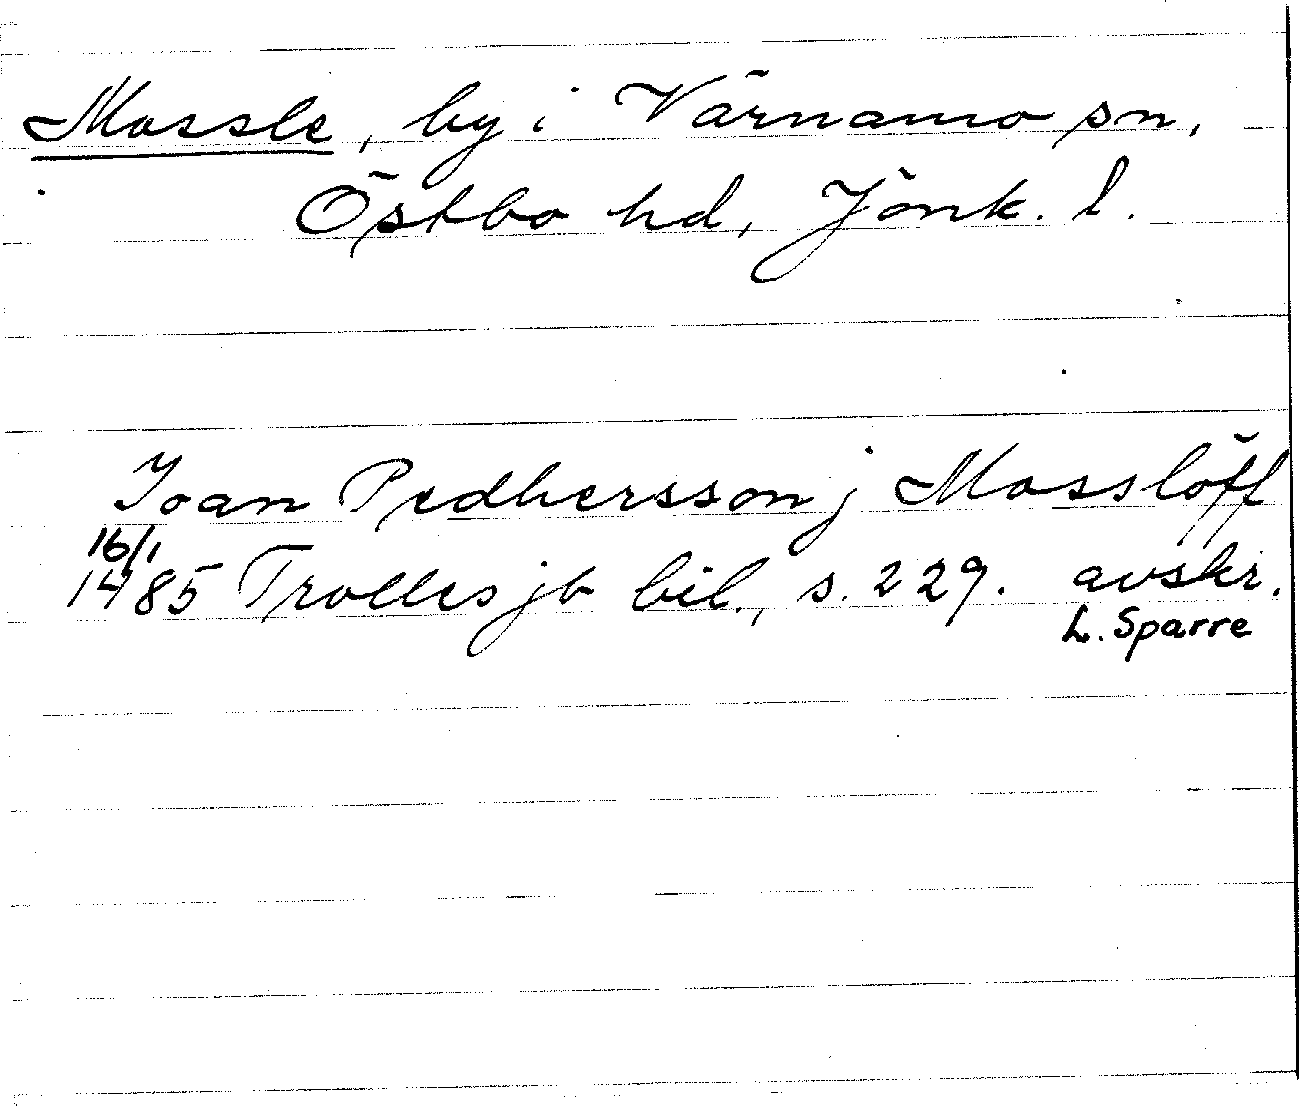 Mossle, by i Värnamo sn,
Östbo hd, Jönk. l.
Joan Pedhersson j Mosslöff
16/1
1485 Trolles jb bil., s. 229. avskr.
L. Sparre